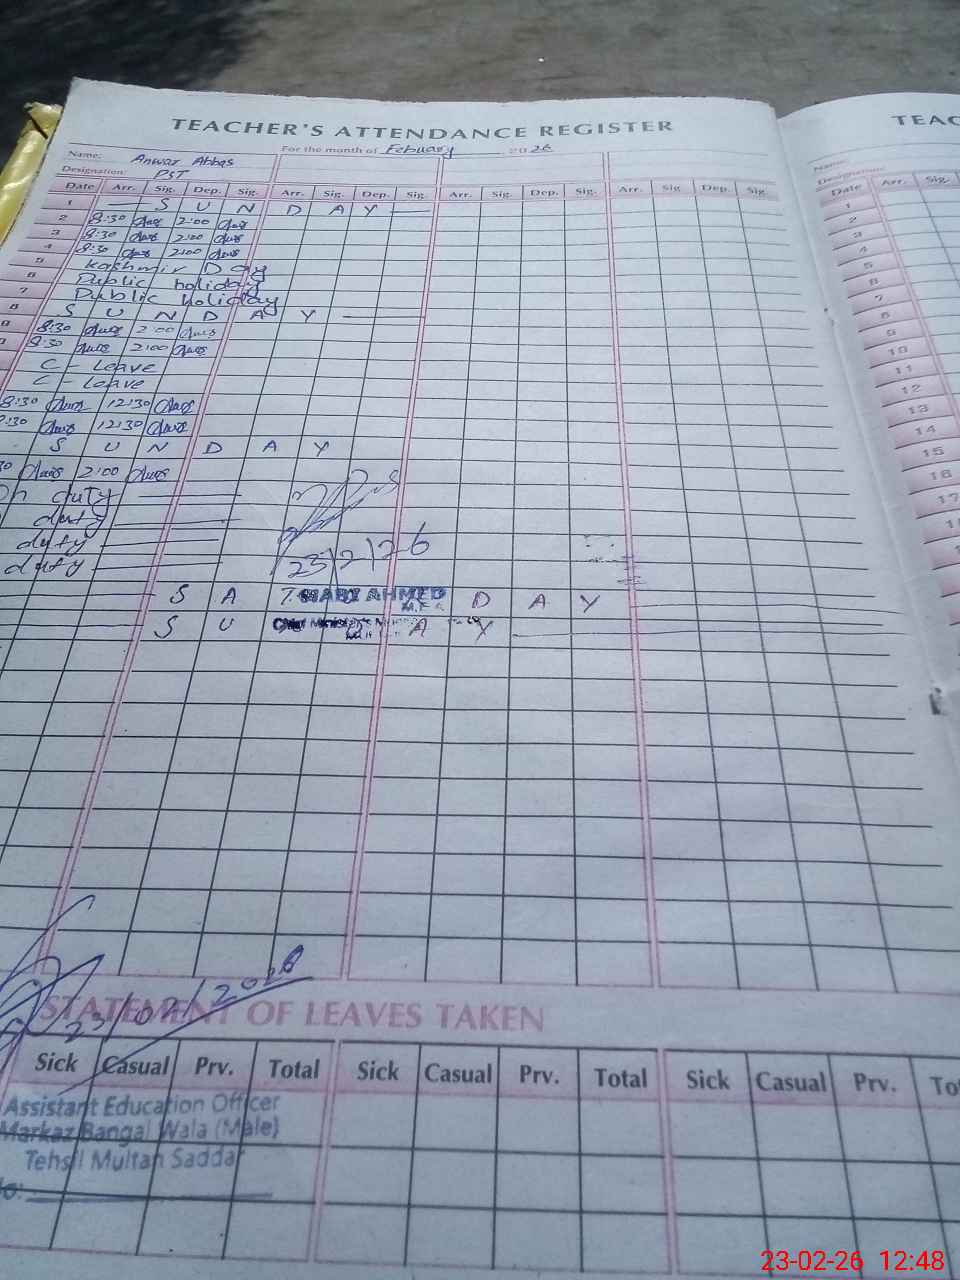 TEACHER'S ATTENDANCE REGISTER
TEAC
Name: Anwar Abbas For the month of Febuary 2026
Name:
Designation: PST
Designation:
Date Arr. Sig. Dep. Sig. Arr. Sig. Dep. Sig. Arr. Sig. Dep. Sig. Arr. Sig. Dep. Sig.
Date Arr. Sig.
1 S U N D A Y
2 8:30 2:00
3 8:30 2:00
4 8:30 2:00
5 Kashmir Day
6 Public holiday
7 Public holiday
8 S U N D A Y
9 8:30 2:00
8:30 2:00
C - Leave
C - Leave
8:30 12:30
12:30
S U N D A Y
2:00
On duty
duty
duty
duty
23/2/26
S A T D A Y
AHMED
S U D A Y
1
2
3
4
5
6
7
8
9
10
11
12
13
14
15
16
17
23/02/2026
STATEMENT OF LEAVES TAKEN
Sick Casual Prv. Total Sick Casual Prv. Total Sick Casual Prv. To
Assistant Education Officer
Markaz Bangal Wala (Male)
Tehsil Multan Saddar
23-02-26 12:48